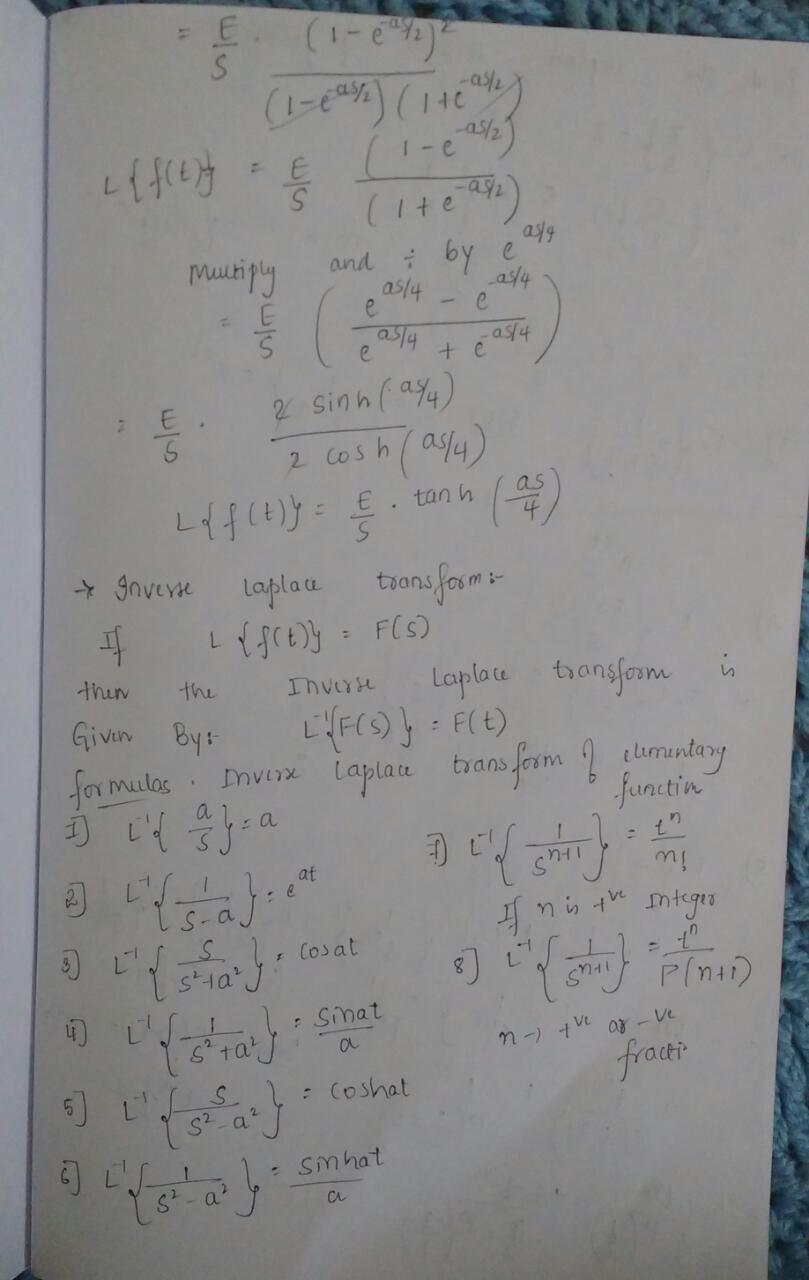 = E/S . (1 - e^-as/2)^2 / (1-e^-as/2) (1+e^-as/2)
L{f(t)} = E/S (1-e^-as/2) / (1+e^-as/2)
Multiply and ÷ by e^as/4
= E/S ( e^as/4 - e^-as/4 / e^as/4 + e^-as/4 )
= E/S . 2 sinh(as/4) / 2 cosh(as/4)
L{f(t)} = E/S . tanh (as/4)
→ Inverse Laplace transform:-
If L{f(t)} = F(S)
then the Inverse Laplace transform is
Given By:- L^-1{F(S)} = F(t)
formulas . Inverse Laplace transform of elementary
function
1] L^-1{a/S} = a
2] L^-1{1/S-a} = e^at
3] L^-1{S/S²+a²} = cosat
4] L^-1{1/S²+a²} = Sinat/a
5] L^-1{S/S²-a²} = coshat
6] L^-1{1/S²-a²} = Sinhat/a
7] L^-1{1/S^n+1} = t^n/n!
If n is +ve Integer
8] L^-1{1/S^n+1} = t^n/Γ(n+1)
n → +ve or -ve
fracti